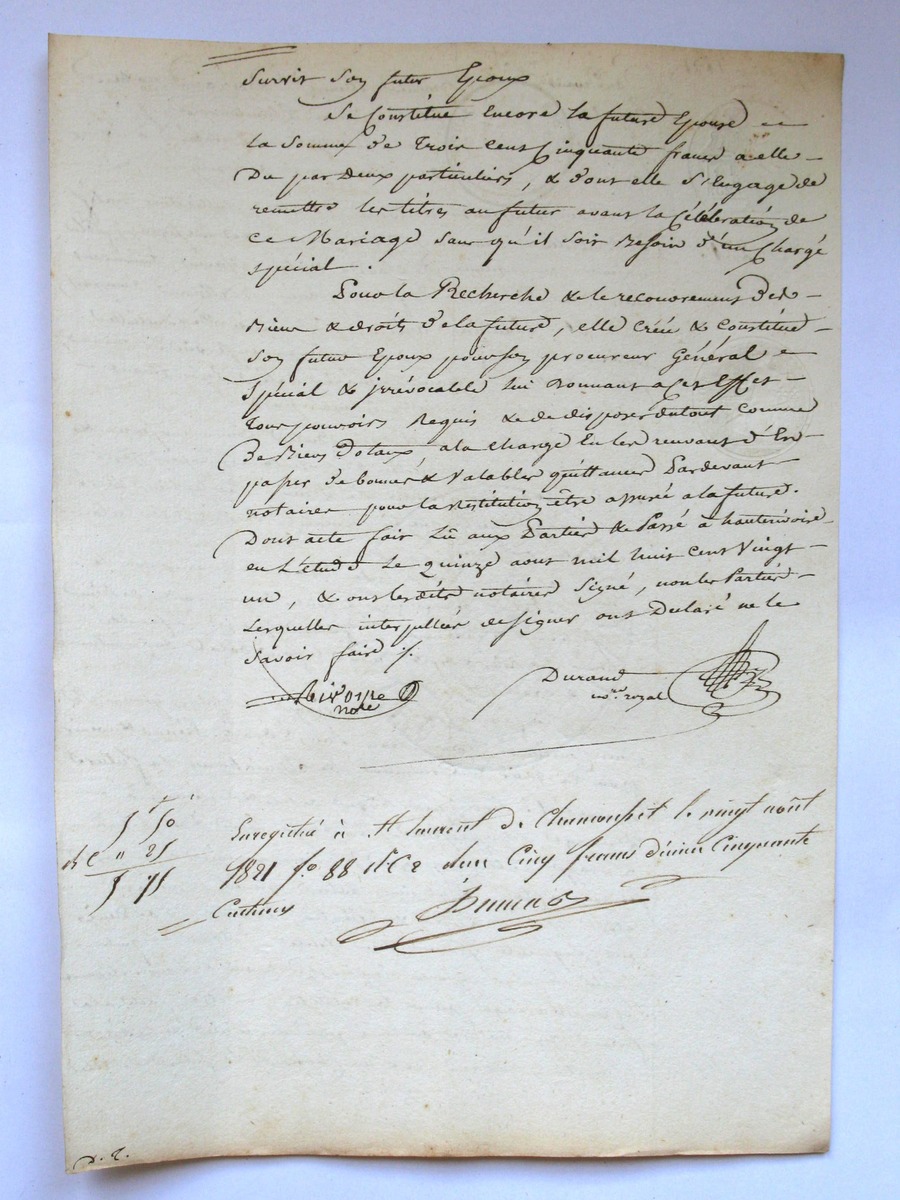 survit son futur Epoux
Se Constitue Encore la future Epouse en
la somme de Trois cent Cinquante francs a elle
Du par deux particuliers, & dont elle s'Engage de
remettre les titres au futur avant la Célébration de
ce Mariage sans qu'il soit Besoin d'un Chargé
spécial.
Pour la Recherche & le recouvrement des
Biens & droits de la future, elle créé & Constitue
son futur Epoux pour son procureur Général &
spécial & irrévocable lui Donnant a Ces Effets
Tous pouvoirs Requis & de disposer du tout comme
De Biens Dotaux, a la charge En les recevant d'En
passer de bonnes & Valables quittances Pardevant
notaires pour la restitution être assuré a la future.
Dont acte fait Lû aux Parties & Passé à hauterivoire
en L'etude Le quinze aout mil huit cent Vingt
un, & ont lesdits notaires signé, non les Parties
Lesquelles interpellées de signer ont Déclaré ne le
savoir faire ./.
note
Durand
nore. royal
5 50
" 55
Enregistré à St laurent de Chamousset le vingt août
1821 fo 88 Rc 2 reçu Cinq francs décime Cinquante
Centimes